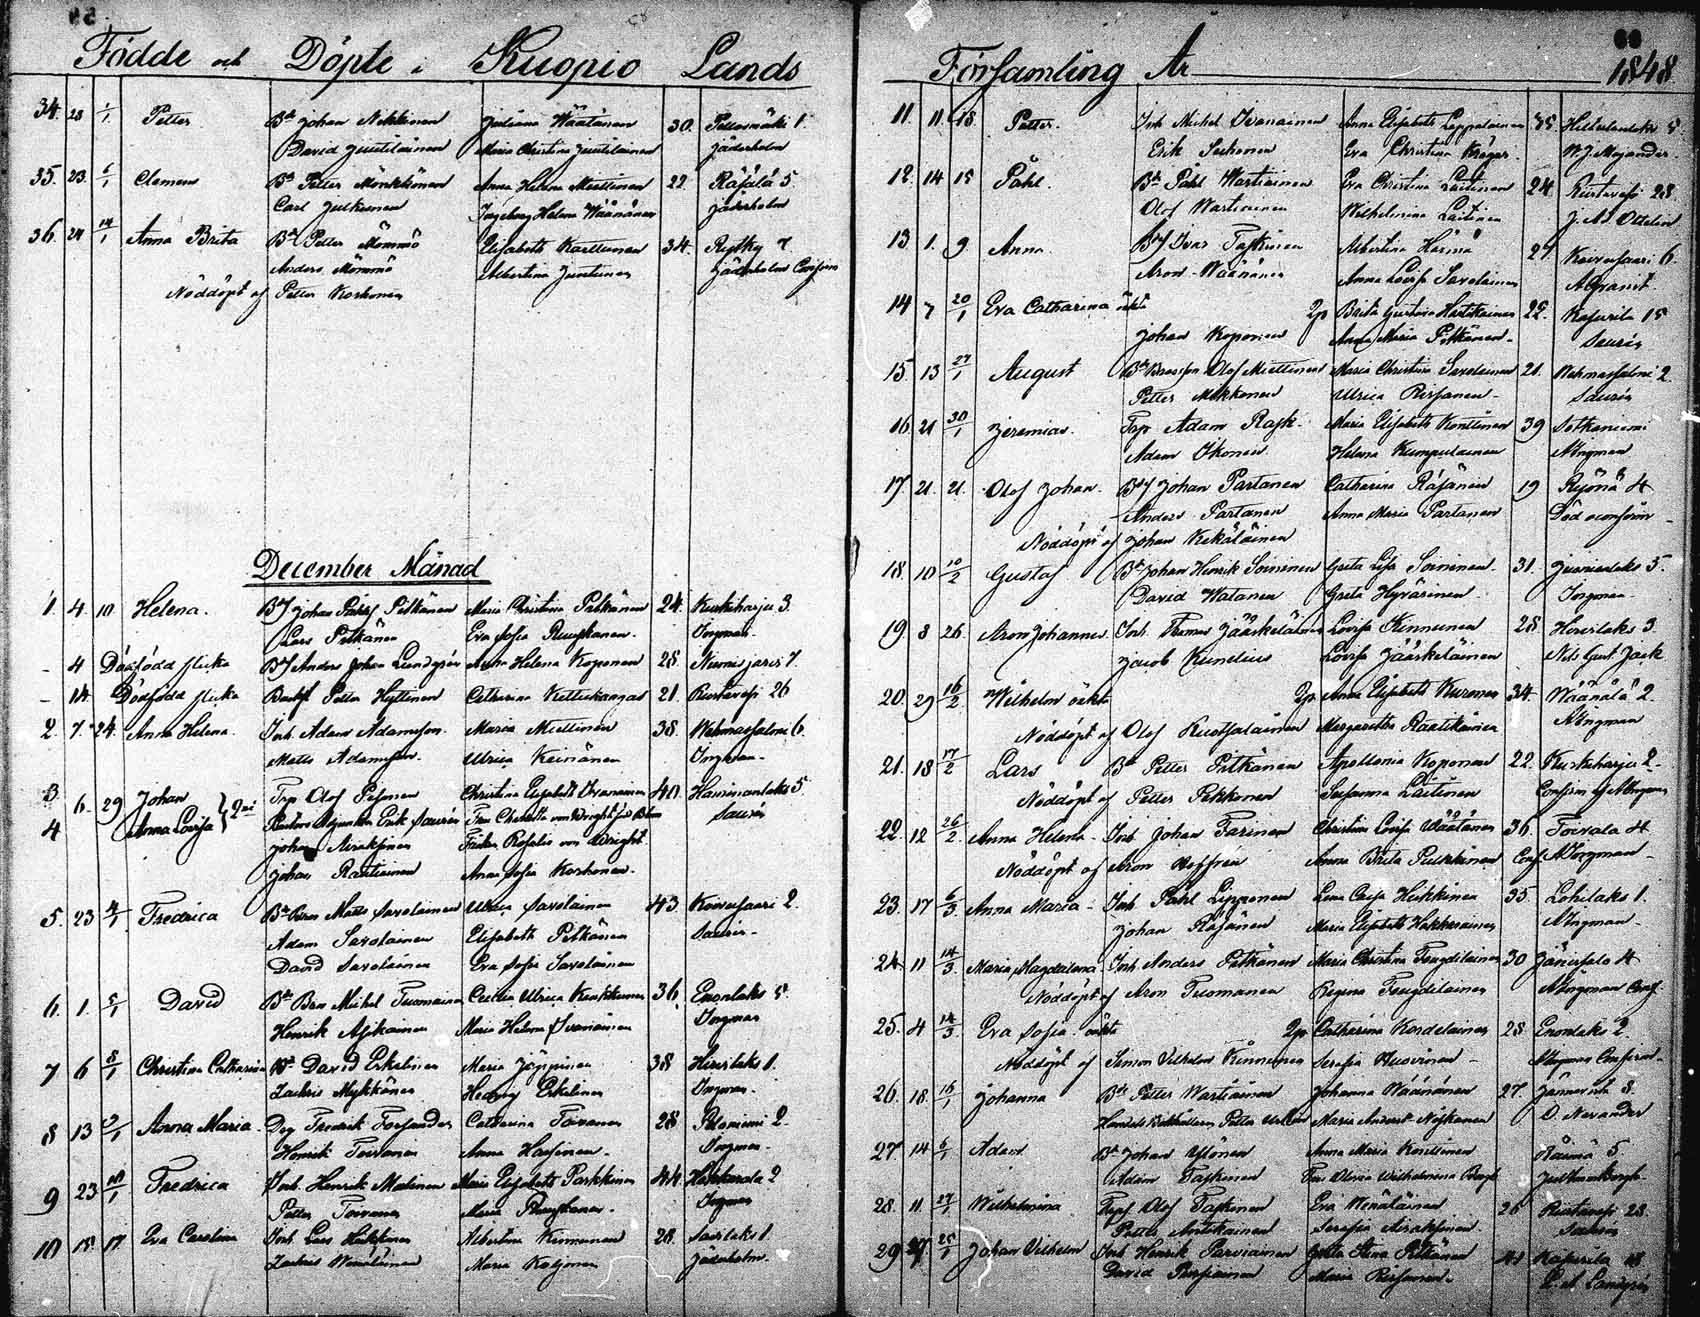 Födde och Döpte i Kuopio Lands
34. 28 1/1 Petter Bd Johan Nikkinen Juliana Wäätänen 30. Pettosmäki 1.
David Juutilainen Maria Christina Juutilainen Jäderholm
35. 23. 6/1 Clemens Bd Petter Mönkkönen Anna Helena Miettinen 22. Räsälä 5
Carl Julkunen Ingeborg Helena Wäänänen Jäderholm
36. 24 14/1 Anna Brita Bd Petter Mömmö Elisabeth Karttunen 34. Rytky 7
Anders Mömmö Albertina Juntunen Jäderholm Confirm
Nöddöpt af Petter Korhonen
December Månad
1. 4. 10 Helena. Johan Pitkänen Maria Christina Pitkänen 24. Kurkiharju 3.
Lars Pitkänen Eva Sofia Ruuskanen. Ingman.
- 4 Dödfödd flicka Anders Johan Lundgrén Anna Helena Koponen 28 Niemisjärvi 7.
- 14 Dödfödd flicka Petter Hyttinen Catharina Kettukangas 21. Puutossi 26
2. 7. 24. Anna Helena. Inh. Adam Adamsson. Maria Miettinen 38. Wehmasalmi 6.
Matts Adamsson. Ulrica Keinänen Ingman.
3 6. 29 Johan Trp Olof Christina Elisabeth Iivanainen 40. Haminanlaks 5
4 Anna Lovisa 2ni Erik Saurén Fru Charlotta von Wright Saurén
Johan Airaksinen Fröken Rosalie von Wright
Johan Rautiainen Anna Sofia Korhonen.
5. 23 4/1 Fredrica Matts Savolainen Ulrica Savolainen 43 Koivusaari 2.
Adam Savolainen Elisabeth Pitkänen Saurén
David Savolainen Eva Sofia Savolainen
6. 1. 5/1 David Michel Tuomainen Cecilia Ulrica Kaukkunen 36 Enonlaks 5
Henrik Asikainen Maria Helena Iivanainen Ingman
7 6 8/1 Christina Catharina Bd David Eskelinen Maria Jäppinen 38 Hirvilaks 1.
Zachris Mykkänen Hedvig Eskelinen Ingman.
8 13 Anna Maria. Drg Fredrik Forsander Catharina Toivanen 28 Pelonimi 2.
Henrik Toivanen Anna Hassinen. Ingman.
9 23 Fredrica Inh Henrik Malinen Maria Elisabeth Parkkinen 44 Hakkarala 2
Petter Toivanen Maria Ruuskanen. Ingman
10 15 17. Eva Carolina Inh Lars Hakkinen Albertina Kinnunen 28. Saarilaks 1.
Zachris Wenäläinen Maria Koljonen Jäderholm.
Församling År 1848
11 11. 18 Petter. Inh Michel Iivanainen Anna Elisabeth Leppäläinen 35 5.
Erik Sutinen Eva Christina Kröger. W. J. Mojander.
12. 14 15 Påhl. Bd Påhl Wartiainen Eva Christina Laitinen 24 Puutossi 28
Olof Wartiainen Wilhelmina Laitinen J. A. J. Ottelin
13 1. 9 Anna. Ivar Taskinen Albertina Härmä 27 Koivusaari 6.
Aron Wäänänen Anna Lovisa Savolainen A Granit.
14 7 20/1 Eva Catharina oäkta 2p Brita Gustava Hartikainen 22. Kasurila 15
Johan Koponen Anna Maria Pitkänen. Saurén
15. 13 27/1 August Olof Miettinen Maria Christina Savolainen 21. Wehmasalmi 2.
Petter Mikkonen Ulrica Pirhonen. Saurén
16. 21 30/1 Jeremias. Trp Adam Rask. Maria Elisabeth Konttinen 39 Sotkaniemi
Adam Ikonen Helena Kumpulainen AIngman
17 21. 21. Olof Johan. Johan Partanen Catharina Räsänen 19 Ryönä 4
Anders Partanen Anna Maria Partanen Död oconfirm
Nöddöpt af Johan Kekäläinen
18. 10 10/2 Gustaf Bd Johan Henrik Soininen Greta Lisa Soininen. 31. 5.
David Watanen Greta Hyvärinen Ingman.
19. 8 26. Aron Johannes. Inh. Thomas Jääskeläinen Lovisa Kinnunen 28 Hirvilaks 3.
Jacob Kunelius Lovisa Jääskeläinen Nils Gust. Jack
20. 29 16/2 Wilhelm oäkta 2p Anna Elisabeth Kuronen 34. Wäänälä 2.
Nöddöpt af Olof Ruotsalainen Margaretha Raatikainen AIngman
21. 18 17/2 Lars Bd Petter Pitkänen Apollonia Koponen 22. Kurkiharju 2.
Nöddöpt af Petter Pekkonen Susanna Laitinen Confirm af AIngman
22. 12 26/2 Anna Helena. Inh Johan Farinen Christina Lovisa Väätänen 36. Toivala 4
Nöddöpt af Aron Hoffrén Anna Brita Pulkkinen Conf AIngman.
23. 17 6/3 Anna Maria. Inh Påhl Lipponen Lena Caisa Heikkinen 35. Lohilaks 1.
Johan Räsänen Maria Elisabeth Hakkarainen AIngman.
24 11 14/3 Maria Magdalena Inh Anders Pitkänen Maria Christina Taugdilainen 30 Jänissalo 4
Nöddöpt af Aron Tuomanen Regina Taugdilainen AIngman Conf
25. 4 14/3 Eva Sofia. oäkta 2p Catharina Kordelainen 28 Enonlaks 2
Nöddöpt af Simon Vilhelm Kinnunen Serafia Husvinen. AIngman Confirm.
26. 18. 16/1 Johanna Bd Petter Wartiainen Johanna Wäänänen 27. Jännevirta 8.
Petter Maria Noiskanen O. Nevander
27. 14 6/1 Adam Bd Johan Ylönen Anna Maria Konttinen Räimä 5
Adam Taskinen Fru Olivia Wilhelmina Bergh
28. 11. 27/1 Wilhelmina Olof Taskinen Eva Wenäläinen 26 Puutossi 28.
Petter Antikainen Serafia Airaksinen Saurén
29 27. 25/1 Johan Vilhelm Inh Henrik Parviainen Greta Stina Pitkänen 41 Kasurila 18
David Parviainen Maria Pirhonen.